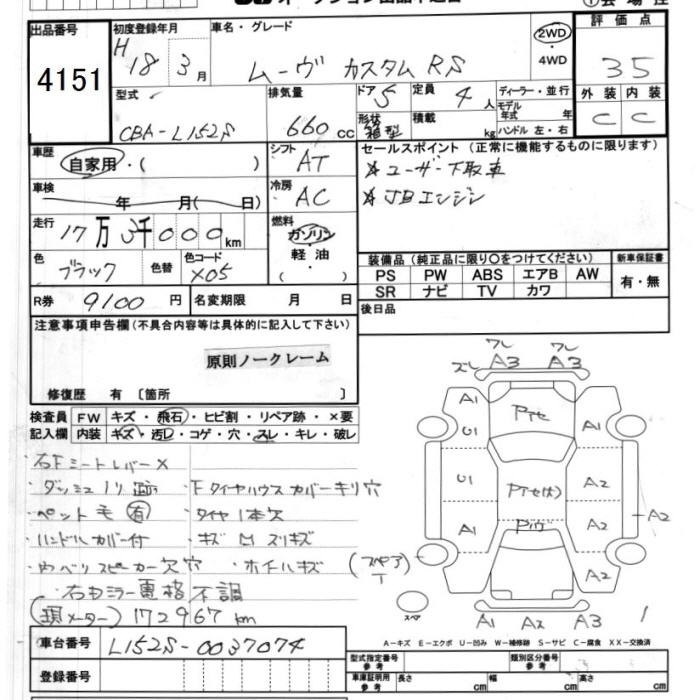 出品番号 初度登録年月 車名・グレード 評価点
4151 H18 3月 ムーヴ カスタム RS 2WD・4WD 35
型式 排気量 ドア 5 定員 4人 ディーラー・並行 外装 内装
CBA-L152S 660cc 形状 箱型 積載 kg モデル年式 年 ハンドル 左・右 C C
車歴 自家用・( ) シフト AT セールスポイント(正常に機能するものに限ります)
車検 年 月( 日) 冷房 AC ☆ユーザー下取車
☆JBエンジン
走行 17万 千000km 燃料 ガソリン・軽油・( )
装備品(純正品に限り○をつけてください) 新車保証書
色 ブラック 色替 色コード X05 PS PW ABS エアB AW 有・無
SR ナビ TV カワ
R券 9100円 名変期限 月 日 後日品
注意事項申告欄(不具合内容等は具体的に記入して下さい)
原則ノークレーム
修復歴 有〔箇所 〕
検査員記入欄 FW キズ・飛石・ヒビ割・リペア跡・×要
内装 キズ・汚レ・コゲ・穴・スレ・キレ・破レ
右Fシートレバー×
ダッシュノリ跡 ・Fタイヤハウスカバーキリ穴
ペット毛有 ・タイヤ1本欠
ハンドルカバー付 ・キズ M スリキズ
内ベリスピーカー欠穴 ・ホイールキズ
右ドミラー電格不調
(現メーター)172967km
ズレ ワレ A3 ワレ A3
A1 Pテセ A1
U1
U1 Pテセ(大) A2
A1 Pリヴ A2 A2
A2
スペア A1 A2 A3
A-キズ E-エクボ U-凹み W-補修跡 S-サビ C-腐食 XX-交換済
車台番号 L152S-0037074
型式指定番号 参考 類別区分番号 参考
登録番号 車庫証明用 参考 長さ cm 幅 cm 高さ cm